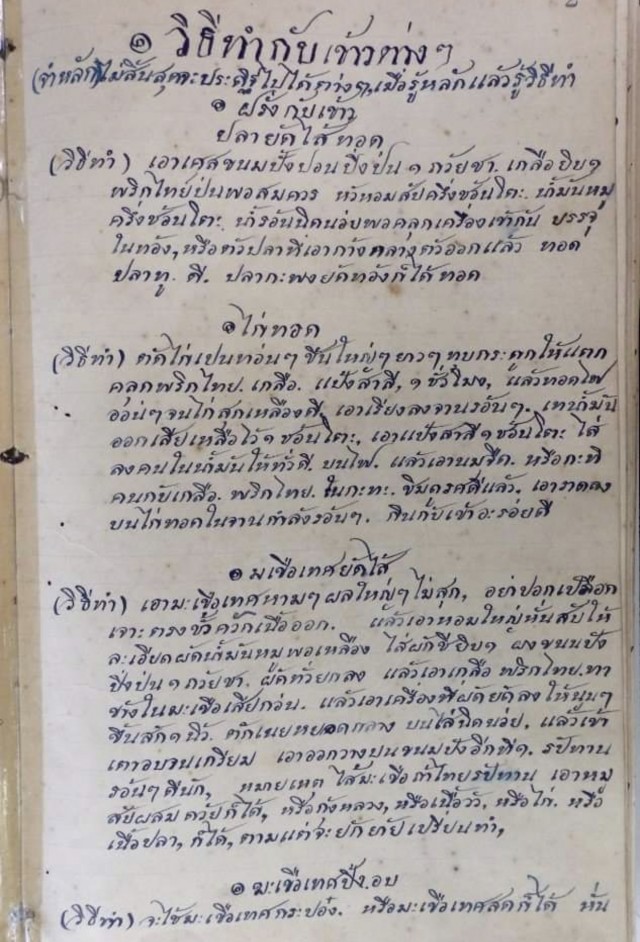 ๏ วิธีทำกับเข้าวต่างๆ
(จำหลัก)ไม่สิ้นสุดจะประดิฐไปได้ต่างๆ, เมื่อรู้หลักแล้วรู้วิธีทำ
๏ ฝรั่งกับเข้าว
ปลายัดไส้ทอด
(วิธีทำ) เอาเศสขนมปังปอนปิ้งป่น ๑ ถ้วยชา. เกลือยิบๆ
พริกไทยป่นพอสมควร หัวหอมสับครึ่งช้อนโตะ น้ำมันหมู
ครึ่งช้อนโตะ น้ำร้อนนิดน่อยพอคลุกเครื่องเข้ากัน บรรจุ
ในท้อง, หรือตัวปลาที่เอาก้างกลางตัวออกแล้ว ทอด
ปลาทู. ดี. ปลากะพงยัดท้องก็ได้ทอด
๏ ไก่ทอด
(วิธีทำ) ตัดไก่เปนท่อนๆ ชิ้นใหญ่ๆยาวๆ ทุบกระดูกให้แตก
คลุกพริกไทย. เกลือ. แป้งสาลี, ๑ ชั่วโมง, แล้วทอดไฟ
อ่อนๆจนไก่สุกเหลืองดี. เอาเรียงลงจานร้อนๆ. เทน้ำมัน
ออกเสียเหลือไว้ ๑ ช้อนโตะ. เอาแป้งสาลี ๑ ช้อนโตะ ใส่
ลงคนในน้ำมันให้ทั่วดี. บนไฟ. แล้วเอานมจืด. หรือกะทิ
คนกับเกลือ. พริกไทย. ในกะทะ. ชิมดูรศดีแล้ว. เอาราดลง
บนไก่ทอดในจานกำลังร้อนๆ. กินกับเข้าอะร่อยดี
๏ มเขือเทศยัดไส้
(วิธีทำ) เอามะเขือเทศห่ามๆ ผลใหญ่ๆไม่สุก, อย่าปอกเปลือก
เจาะตรงขั้วควักเนื้อออก. แล้วเอาหอมใหญ่หั่นสับให้
ละเอียดผัดน้ำมันหมูพอเหลือง ใส่ผักชียิบๆ ผงขนมปัง
ปิ้งป่น ๑ ถ้วยชา. ผัดทั่วยกลง แล้วเอาเกลือ พริกไทย. ทา
ข้างในมะเขือเสียก่อน. แล้วเอาเครื่องที่ผัดยัดลงให้นูนๆ
ขึ้นสัก ๑ นิ้ว. ตักเนยหยอดกลาง บนไส้นิดน่อย. แล้วเข้า
เตาอบจนเกรียม เอาออกวางบนขนมปังอีกที ๑. รับทาน
ร้อนๆดีนัก, หมายเหตุ ไส้มะเขือถ้าไทยรับทาน เอาหมู
สับผสมด้วยก็ได้, หรือกุ้งหลวง, หรือเนื้อวัว, หรือไก่. หรือ
เนื้อปลา, ก็ได้, ตามแต่จะยักย้ายเปลี่ยนทำ,
๏ มะเขือเทศปิ้ง. อบ
(วิธีทำ) จะใช้มะเขือเทศกระป๋อง. หรือมะเขือเทศสดก็ได้ หั่น